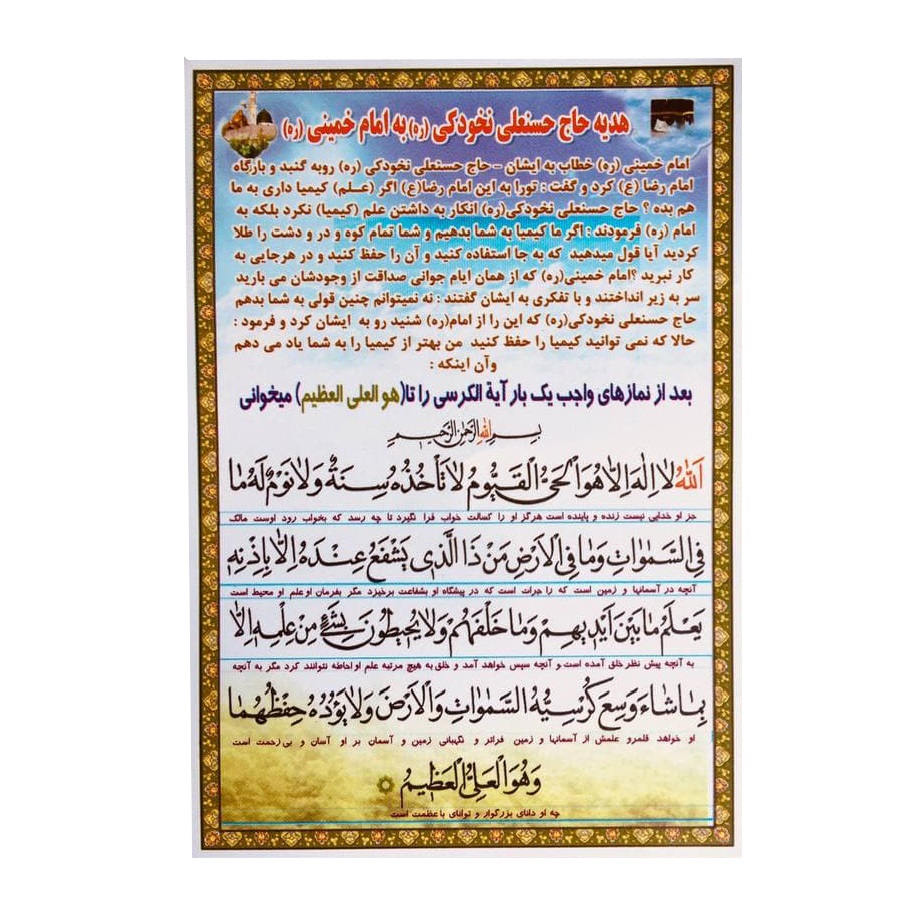 هدیه حاج حسنعلی نخودکی (ره) به امام خمینی (ره)
امام خمینی (ره) خطاب به ایشان - حاج حسنعلی نخودکی (ره) روبه گنبد و بارگاه
امام رضا (ع) کرد و گفت : تورا به این امام رضا(ع) اگر (علم) کیمیا داری به ما
هم بده ؟ حاج حسنعلی نخودکی(ره) انکار به داشتن علم (کیمیا) نکرد بلکه به
امام (ره) فرمودند : اگر ما کیمیا به شما بدهیم و شما تمام کوه و در و دشت را طلا
کردید آیا قول میدهید که به جا استفاده کنید و آن را حفظ کنید و در هرجایی به
کار نبرید ؟امام خمینی(ره) که از همان ایام جوانی صداقت از وجودشان می بارید
سر به زیر انداختند و با تفکری به ایشان گفتند : نه نمیتوانم چنین قولی به شما بدهم
حاج حسنعلی نخودکی(ره) که این را از امام(ره) شنید رو به ایشان کرد و فرمود :
حالا که نمی توانید کیمیا را حفظ کنید من بهتر از کیمیا را به شما یاد می دهم
وآن اینکه :
بعد از نمازهای واجب یک بار آیة الکرسی را تا(هو العلی العظیم) میخوانی
بسم الله الرحمن الرحیم
اَللّٰهُ لا اِلٰهَ اِلّا هُوَ الْحَیُّ الْقَیُّومُ لا تَأْخُذُهُ سِنَةٌ وَلا نَوْمٌ لَهُ ما
جز او خدایی نیست زنده و پاینده است هرگز او را کسالت خواب فرا نگیرد تا چه رسد که بخواب رود اوست مالک
فِی السَّمٰوٰاتِ وَمٰا فِی الْاَرْضِ مَنْ ذَا الَّذی یَشْفَعُ عِنْدَهُ اِلّا بِاِذْنِهِ
آنچه در آسمانها و زمین است که را جرات است که در پیشگاه او بشفاعت برخیزد مگر بفرمان او علم او محیط است
یَعْلَمُ ما بَیْنَ اَیْدیهِمْ وَمٰا خَلْفَهُمْ وَلا یُحیطُونَ بِشَیْءٍ مِنْ عِلْمِهِ اِلّا
به آنچه پیش نظر خلق آمده است و آنچه سپس خواهد آمد و خلق به هیچ مرتبه علم او احاطه نتوانند کرد مگر به آنچه
بِمٰا شٰاءَ وَسِعَ کُرْسِیُّهُ السَّمٰوٰاتِ وَالْاَرْضَ وَلا یَؤُدُهُ حِفْظُهُمٰا
او خواهد قلمرو علمش از آسمانها و زمین فراتر و نگهبانی زمین و آسمان بر او آسان و بی زحمت است
وَهُوَ الْعَلِیُّ الْعَظیمُ
چه او دانای بزرگوار و توانای با عظمت است